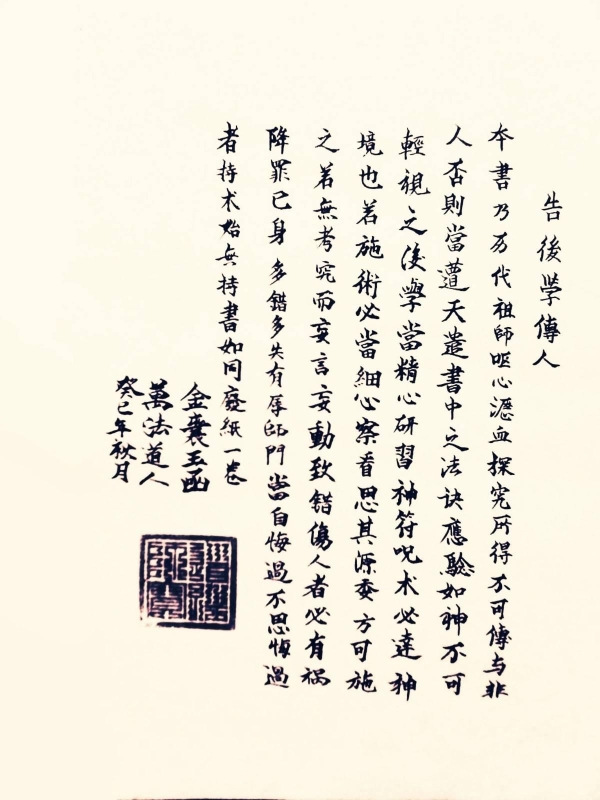 告後學傳人
本書乃历代祖師嘔心瀝血探究所得不可傳与非
人否則當遭天遣書中之法诀應驗如神不可
輕視之後學當精心研習神符呪术必達神
境也若施術必當細心察看思其源委方可施
之若無考究而妄言妄動致錯傷人者必有禍
降罪已身多錯多失有辱師門當自悔過不思悔過
者持术始無持書如同廢紙一卷
金囊玉函
萬法道人
癸巳年秋月